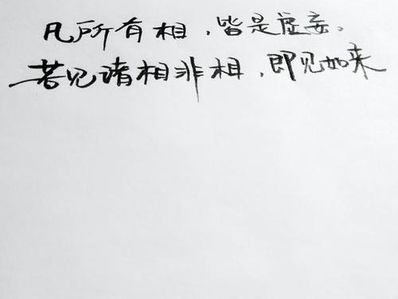 凡所有相，皆是虚妄。
若见诸相非相，即见如来